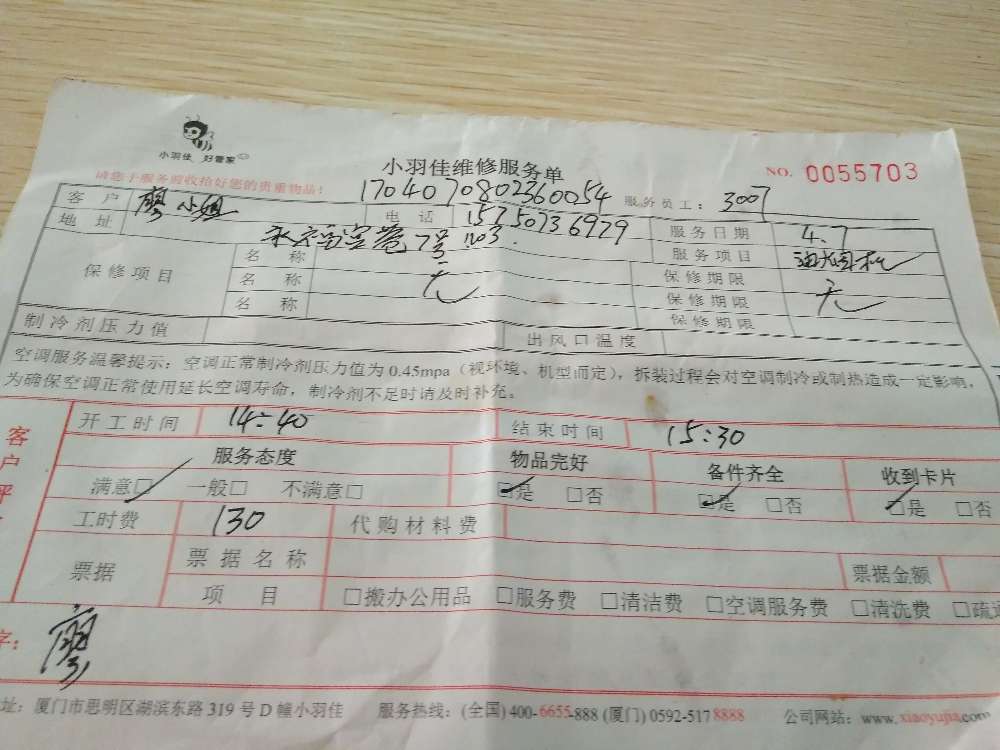 小羽佳 好管家
小羽佳维修服务单
NO. 0055703
请您于服务前收拾好您的贵重物品!
1704070802360054
服务员工: 3007
客户 廖小姐 电话 15750736929 服务日期 4.7
地址 7号1103 服务项目 油烟机
保修项目 名称 无 保修期限 无
名称 保修期限
名称 保修期限
制冷剂压力值 出风口温度
空调服务温馨提示: 空调正常制冷剂压力值为0.45mpa(视环境、机型而定),拆装过程会对空调制冷或制热造成一定影响,
为确保空调正常使用延长空调寿命,制冷剂不足时请及时补充。
客户评
开工时间 14:40 结束时间 15:30
服务态度 物品完好 备件齐全 收到卡片
满意□ 一般□ 不满意□ □是 □否 □是 □否 □是 □否
工时费 130 代购材料费
票据 票据名称 票据金额
项目 □搬办公用品 □服务费 □清洁费 □空调服务费 □清洗费 □疏通
字: 廖
址: 厦门市思明区湖滨东路319号D幢小羽佳 服务热线: (全国) 400-6655-888 (厦门) 0592-5178888 公司网站: www.xiaoyujia.com